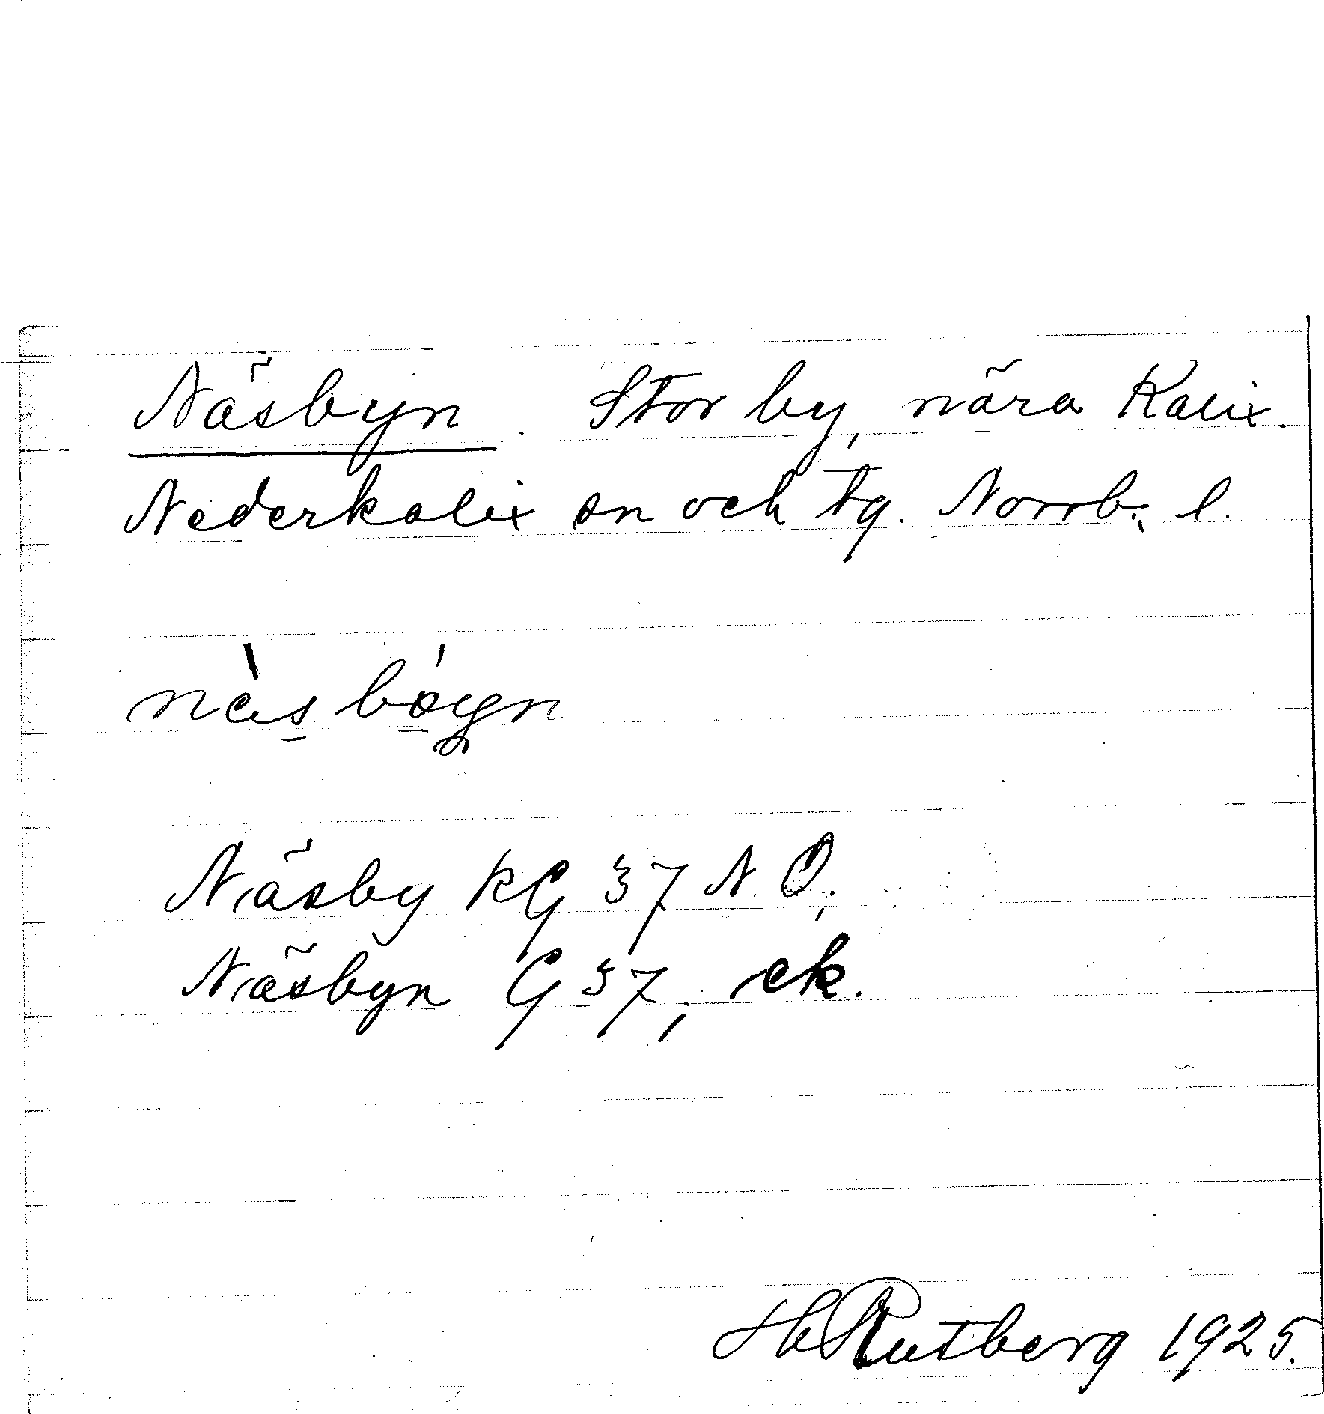 Näsbyn. Stor by, nära Kalix.
Nederkalix sn och tg. Norrb. l.
nä̀sbǿyn
Näsby KG 37 N.O.;
Näsbyn G 37, ek.
H Rutberg 1925.